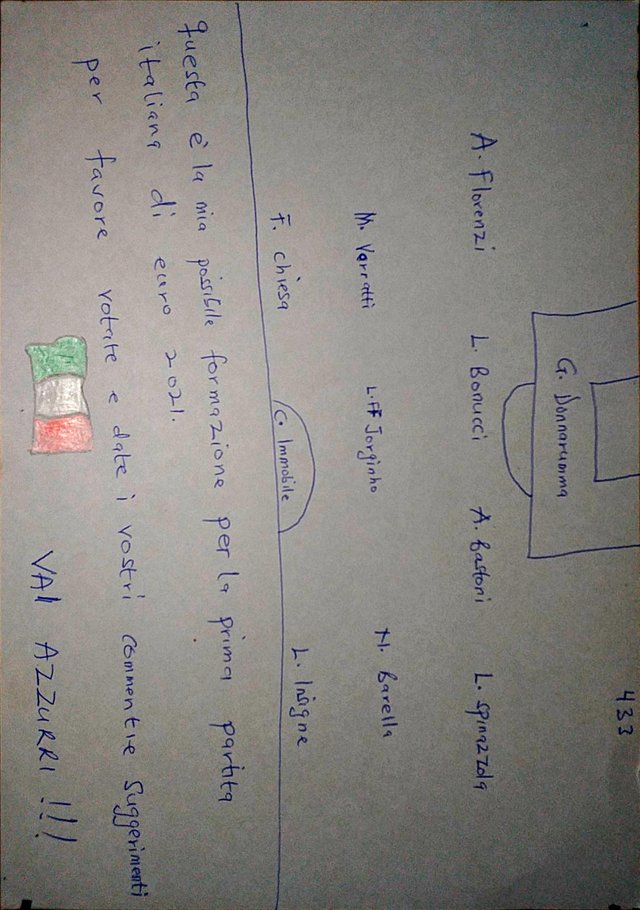 433
G. Donnarumma
A. Florenzi L. Bonucci A. Bastoni L. Spinazzola
M. Verratti L.FF Jorginho N. Barella
F. chiesa C. Immobile L. Insigne
questa è la mia possibile formazione per la prima partita
italiana di euro 2021.
per favore votate e date i vostri commenti e Suggerimenti
VAI AZZURRI !!!